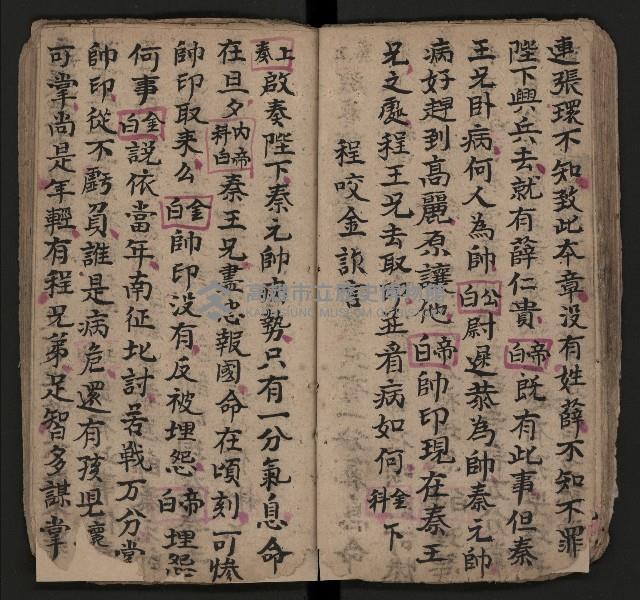 連張環不知致此本章没有姓薛不知不罪
陛下興兵去就有薛仁貴帝白既有此事但秦
王兄卧病何人為帥公白尉遲恭為帥秦元帥
病好趕到高麗原讓他帝白帥印現在秦王
兄之處程王兄去取並看病如何金科下
程咬金
上奏啟奏陛下秦元帥病勢只有一分氣息命
在旦夕内科帝白秦王兄盡忠報國命在頃刻可惨
帥印取来么金白帥印没有反被埋怨帝白埋怨
何事金白說依當年南征北討苦戰万分掌
帥印從不虧負誰是病危還有孩児襄
可掌尚是年輕有程兄弟足智多謀掌
高雄市立歷史博物館
KAOHSIUNG MUSEUM OF HISTORY